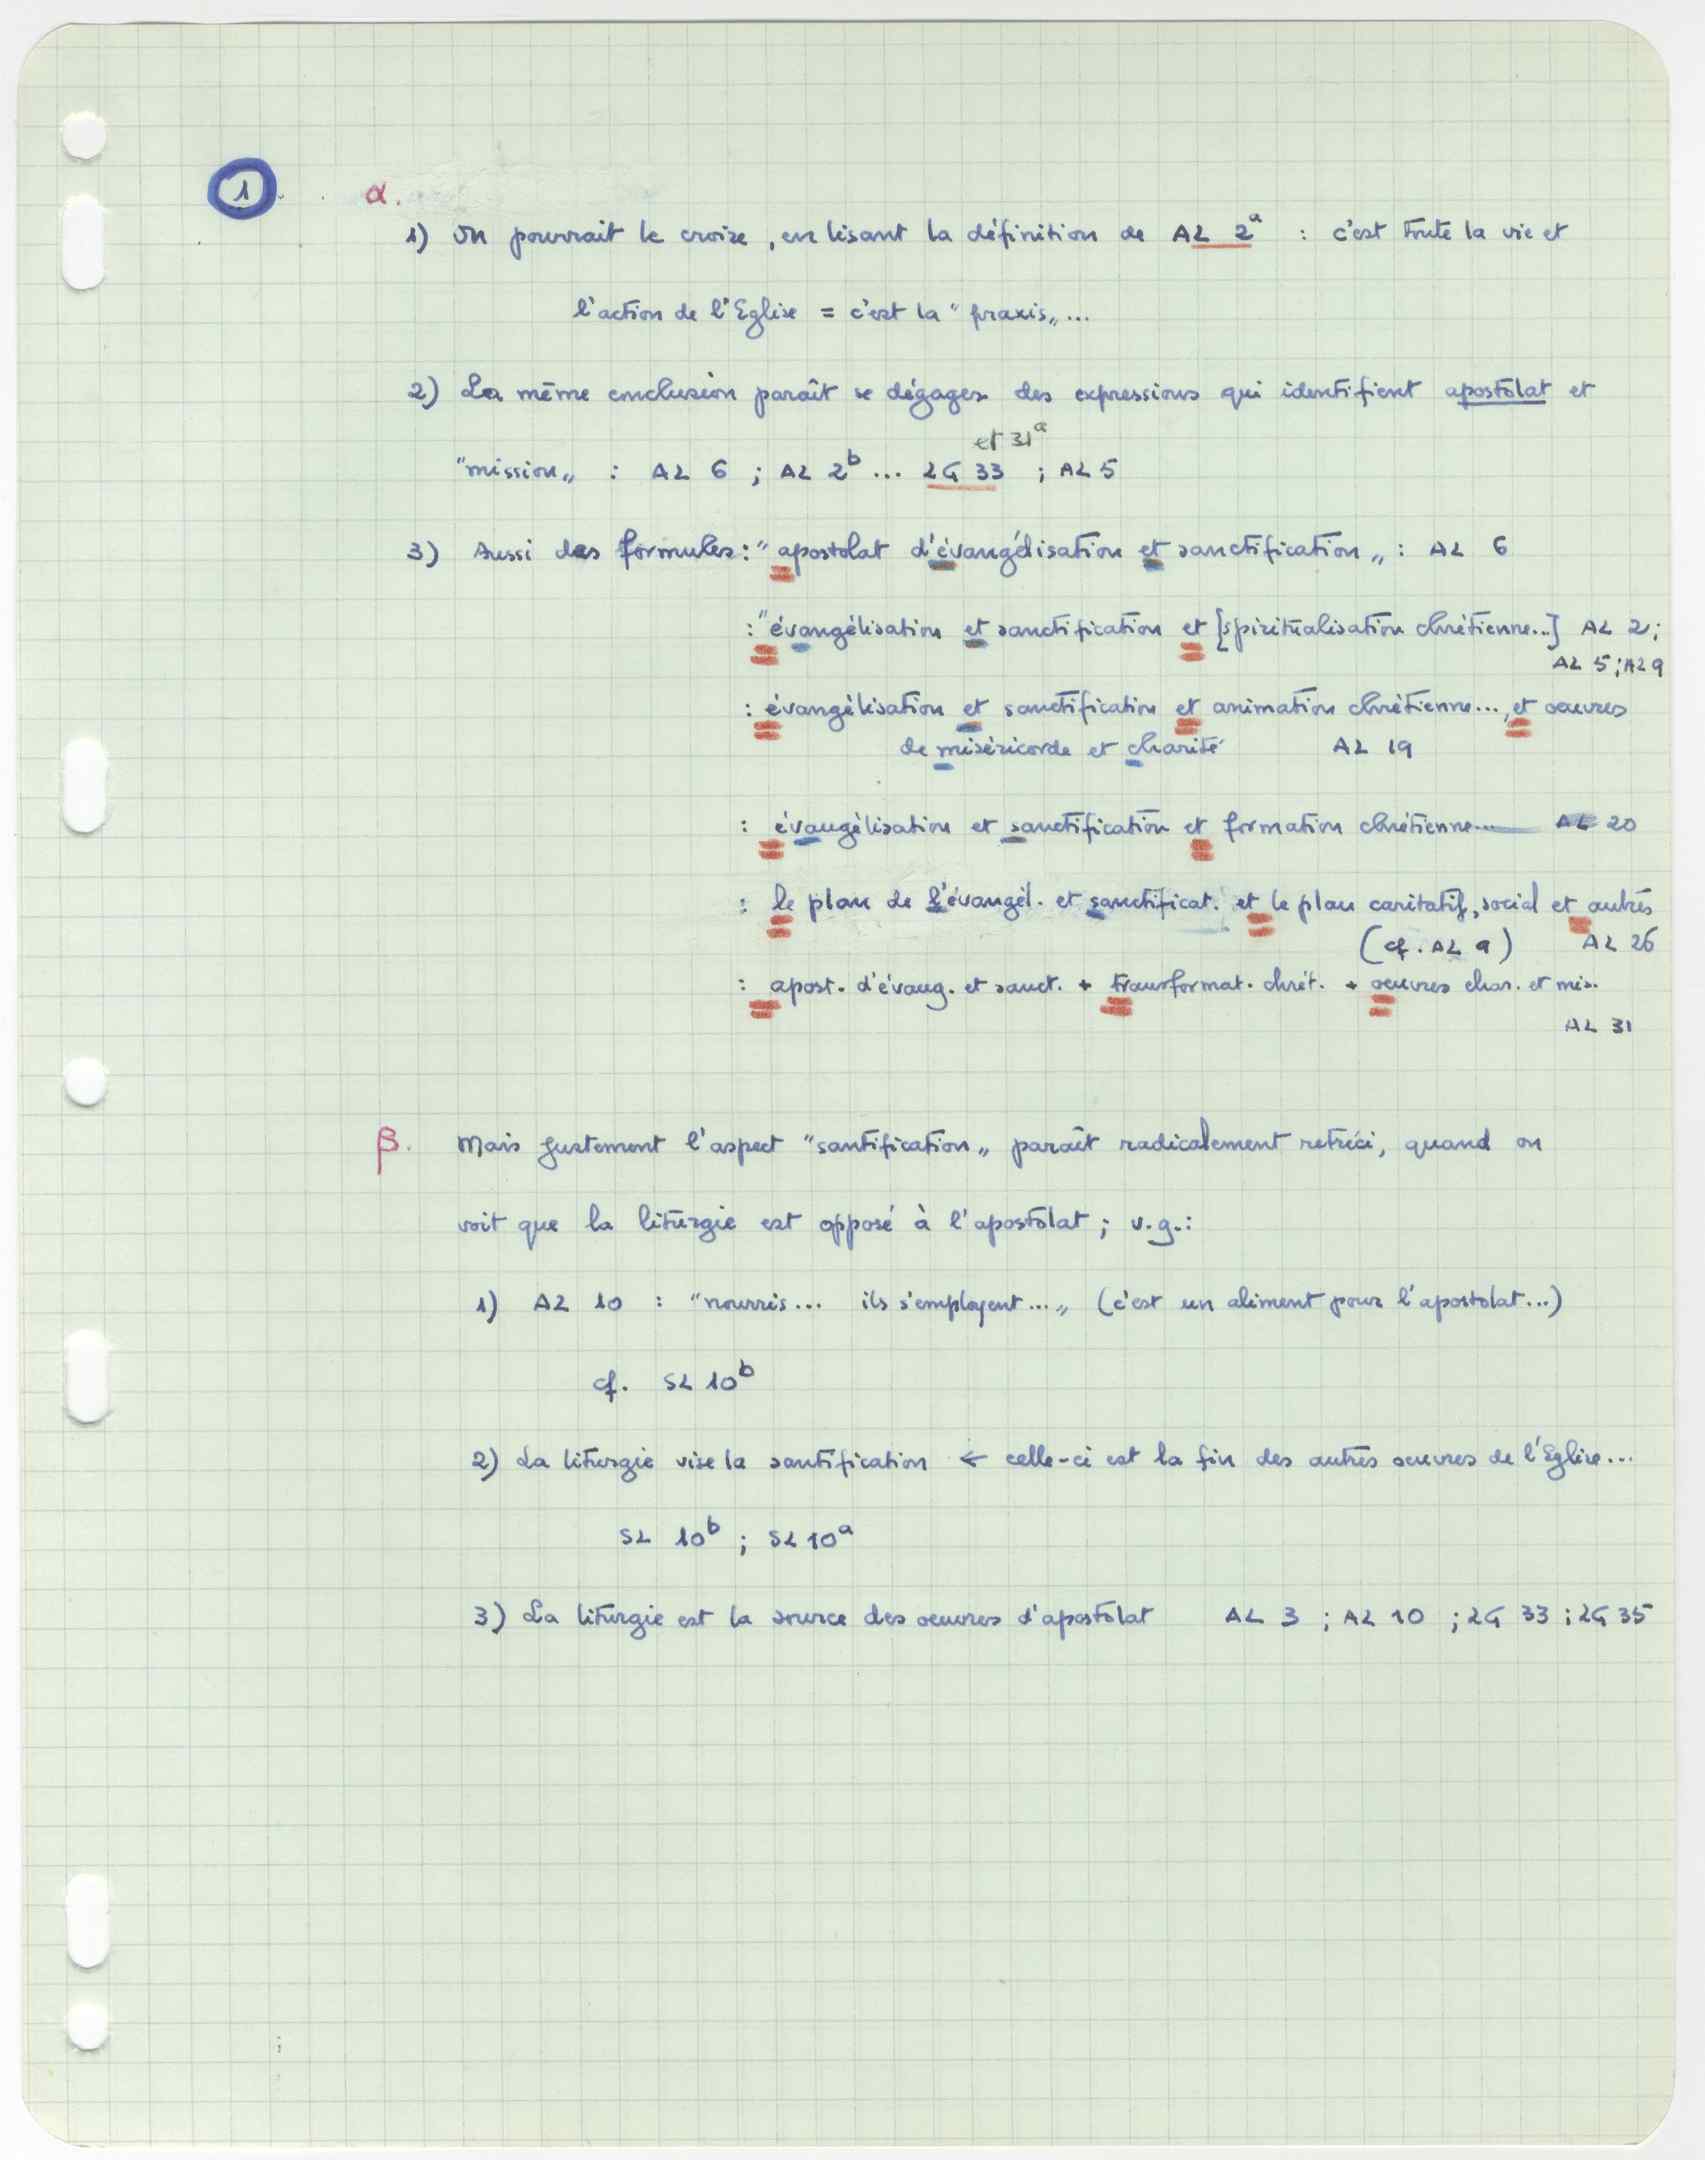 1 α.
1) On pourrait le croire, en lisant la définition de AL 2ᵃ : c'est toute la vie et
l'action de l'Eglise = c'est la "praxis„...
2) La même conclusion paraît se dégager des expressions qui identifient apostolat et
et 31ᵃ
"mission„ : AL 6 ; AL 2ᵇ ... LG 33 ; AL 5
3) Aussi des formules : "apostolat d'évangélisation et sanctification„ : AL 6
: "évangélisation et sanctification et [spiritualisation chrétienne...] AL 2 ;
AL 5 ; AL 9
: évangélisation et sanctification et animation chrétienne..., et oeuvres
de miséricorde et charité AL 19
: évangélisation et sanctification et formation chrétienne... AL 20
: le plan de l'évangél. et sanctificat. et le plan caritatif, social et autres
(cf. AL 9) AL 26
: apost. d'évang. et sanct. + transformat. chrét. + oeuvres char. et mis.
AL 31
β. Mais justement l'aspect "santification„ paraît radicalement retréci, quand on
voit que la liturgie est opposé à l'apostolat ; v.g. :
1) AL 10 : "nourris... ils s'employent...„ (c'est un aliment pour l'apostolat...)
cf. SL 10ᵇ
2) La liturgie vise la santification ← celle-ci est la fin des autres oeuvres de l'Eglise...
SL 10ᵇ ; SL 10ᵃ
3) La liturgie est la source des oeuvres d'apostolat AL 3 ; AL 10 ; LG 33 ; LG 35